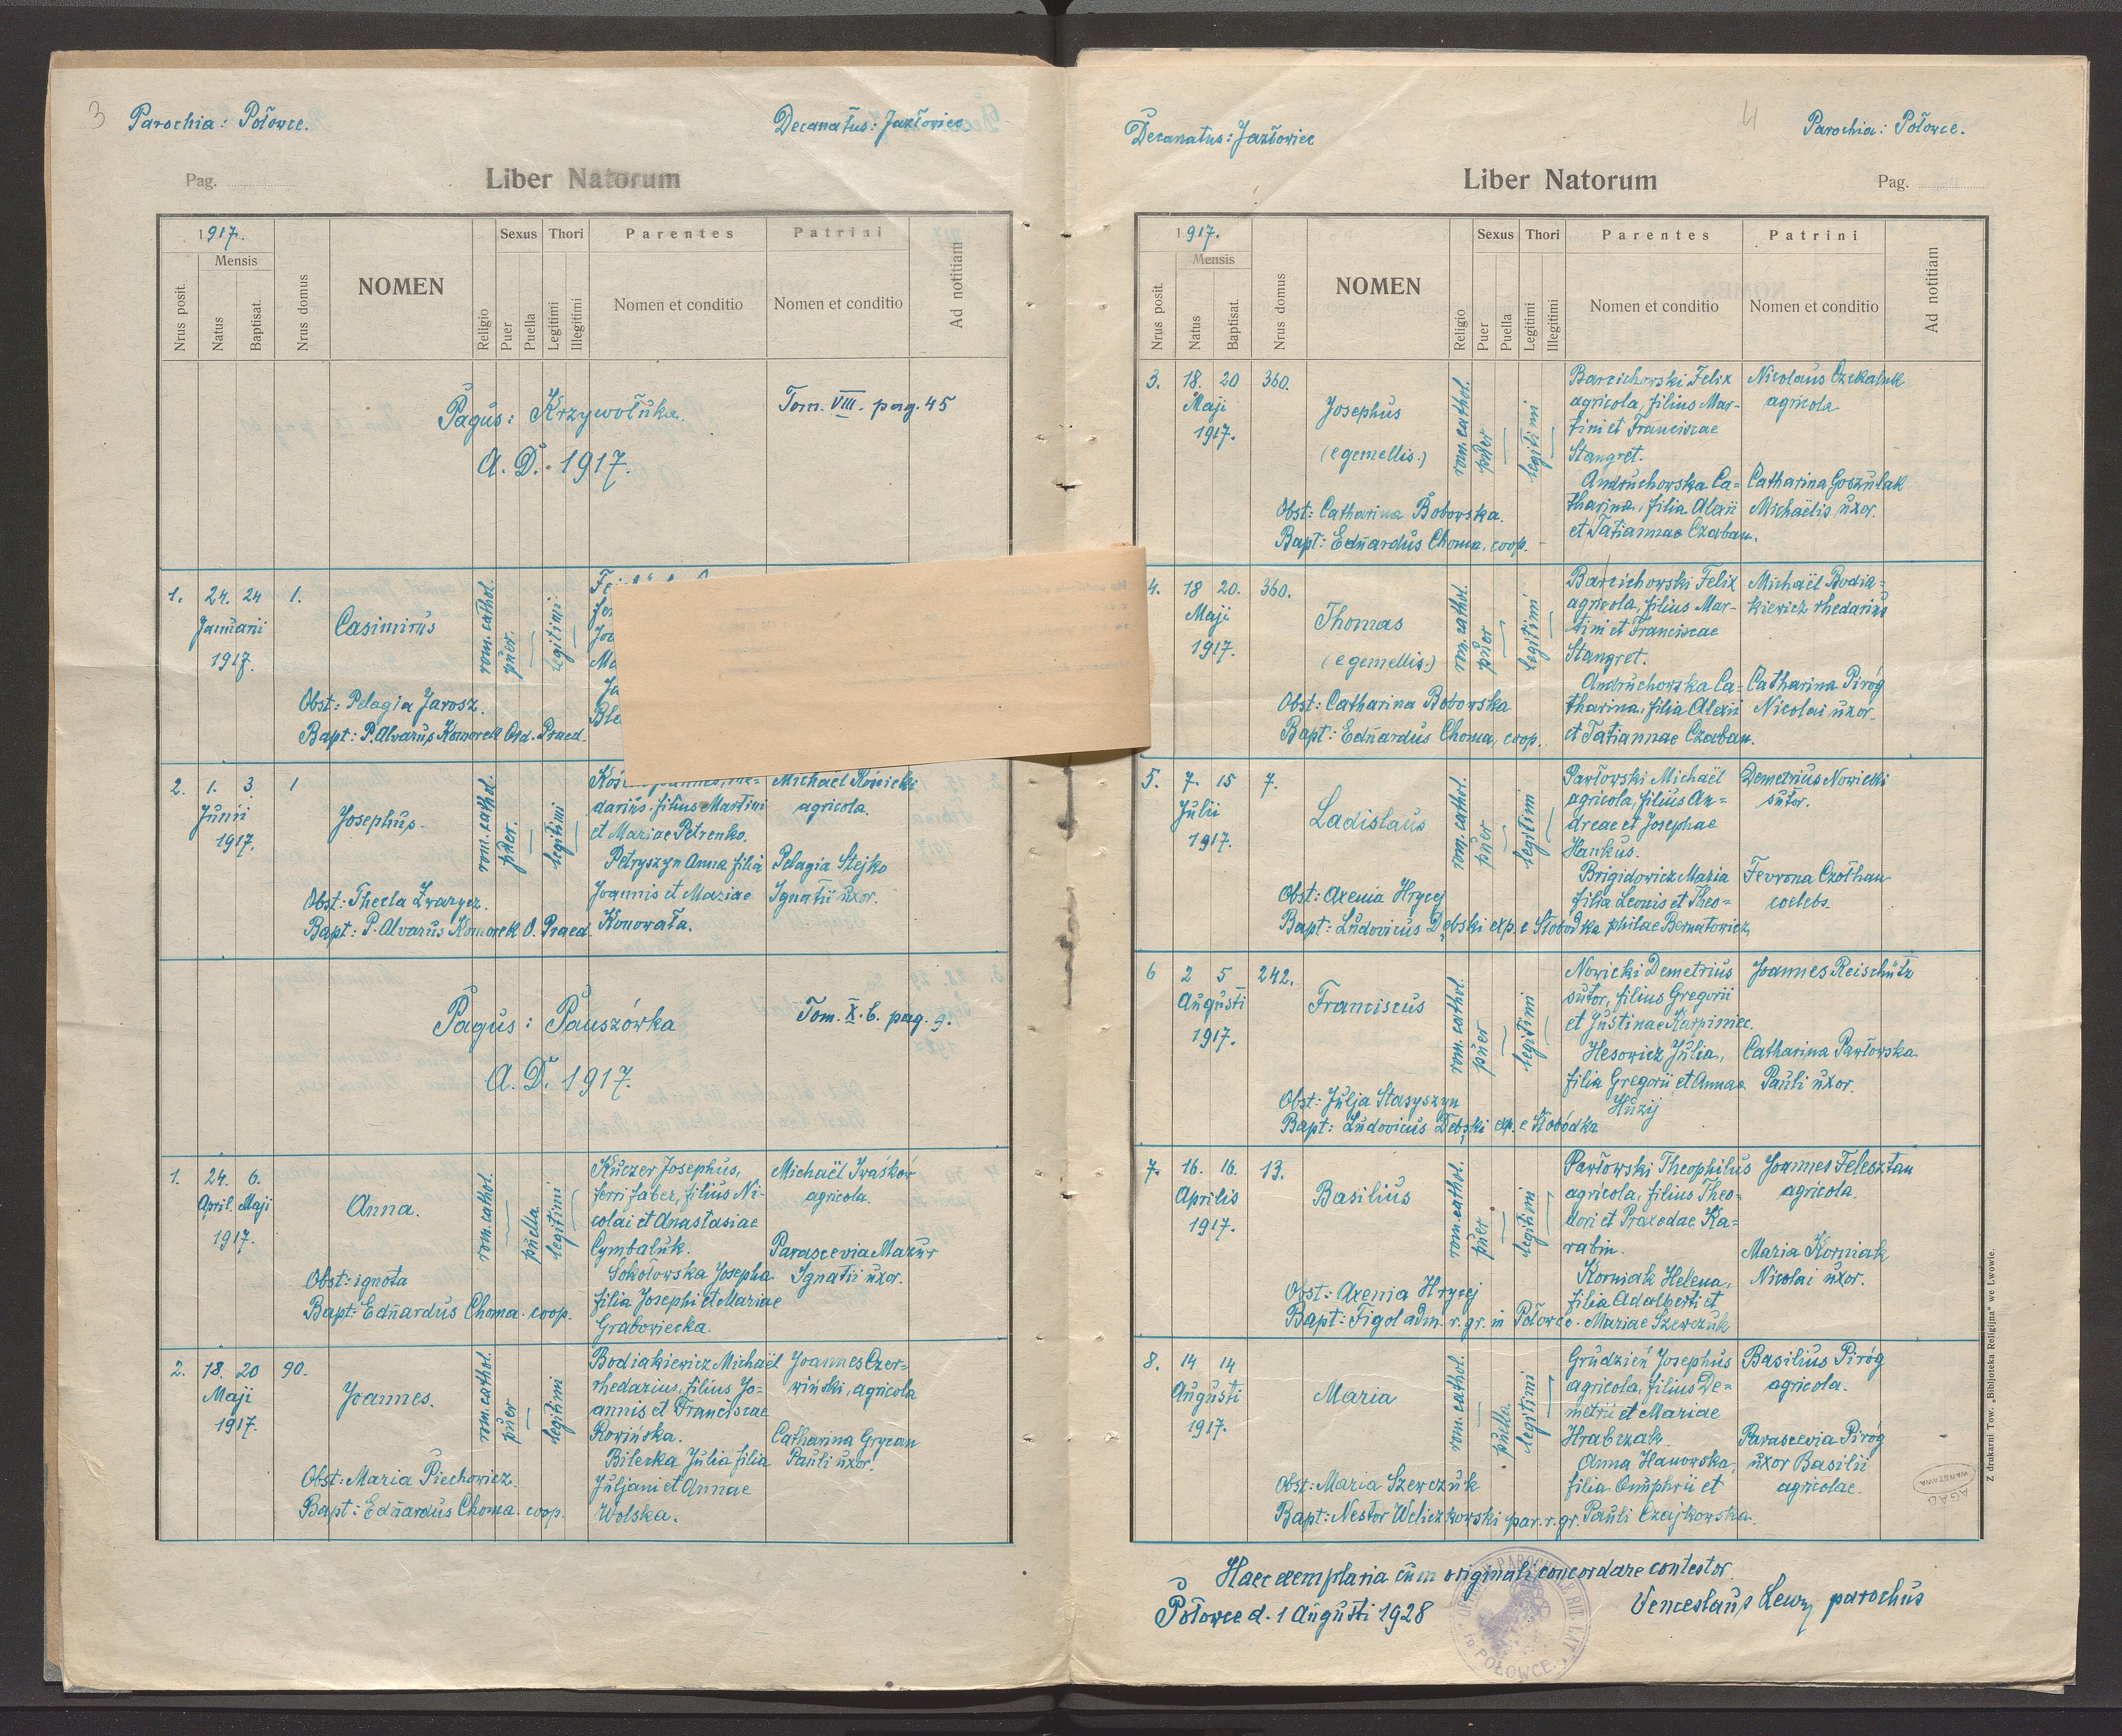 3
Parochia: Połowce.
Decanatus: Jazłowiec
Pag.
Liber Natorum
1917.
Mensis
Nrus posit.
Natus
Baptisat.
Nrus domus
NOMEN
Religio
Sexus
Puer
Puella
Thori
Legitimi
Illegitimi
Parentes
Nomen et conditio
Patrini
Nomen et conditio
Ad notitiam
Pagus: Krzywołuka.
Tom. VIII. pag. 45
A. D. 1917.
1. 24. 24 1.
Januarii
1917.
Casimirus
rom. cathol.
puer.
legitimi
Obst: Pelagia Jarosz.
Bapt: P. Alvarus Komorek Ord. Praed.
2. 1. 3. 1
Junii
1917.
Josephus.
rom. cathol.
puer.
legitimi
darius, filius Martini
et Mariae Petrenko.
Petryszyn Anna filia
Joannis et Mariae
Konowała.
Michaël Kościcki
agricola.
Pelagia Stejko
Ignatii uxor.
Obst: Thecla Zwarycz.
Bapt: P. Alvarus Komorek O. Praed.
Pagus: Pauszówka
Tom. X. b. pag. 9.
A. D. 1917.
1. 24. 6.
April. Maji
1917.
Anna.
rom. cathol.
puella.
legitimi
Kuczer Josephus,
ferri faber, filius Ni-
colai et Anastasiae
Cymbaluk.
Sokołowska Josepha
filia Josephi et Mariae
Grabowiecka.
Michaël Iwaśków
agricola.
Parascevia Mazur
Ignatii uxor.
Obst: ignota
Bapt: Eduardus Choma. coop.
2. 18. 20 90.
Maji
1917.
Joannes.
rom. cathol.
puer
legitimi
Bodiakiewicz Michaël
rhedarius, filius Jo-
annis et Franciscae
Rowińska.
Bilecka Julia filia
Juljani et Annae
Wolska.
Joannes Czer-
wiński, agricola
Catharina Grycan
Pauli uxor.
Obst: Maria Piechowicz.
Bapt: Eduardus Choma. coop.
4
Decanatus: Jazłowiec
Parochia: Połowce.
Liber Natorum
Pag.
1917.
Mensis
Nrus posit.
Natus
Baptisat.
Nrus domus
NOMEN
Religio
Sexus
Puer
Puella
Thori
Legitimi
Illegitimi
Parentes
Nomen et conditio
Patrini
Nomen et conditio
Ad notitiam
3. 18. 20 360.
Maji
1917.
Josephus
(e gemellis.)
rom. cathol.
puer
legitimi
Barcichowski Felix
agricola, filius Mar-
tini et Franciscae
Stangret.
Andruchowska Ca-
tharina, filia Alexii
et Tatiannae Czaban.
Nicolaus Czekaluk
agricola
Catharina Goszulak
Michaëlis uxor.
Obst: Catharina Bobowska.
Bapt: Eduardus Choma, coop.
4. 18 20. 360.
Maji
1917.
Thomas
(e gemellis.)
rom. cathol.
puer
legitimi
Barcichowski Felix
agricola, filius Mar-
tini et Franciscae
Stangret.
Andruchowska Ca-
tharina, filia Alexii
et Tatiannae Czaban.
Michaël Bodia-
kiewicz rhedarius
Catharina Piróg
Nicolai uxor.
Obst: Catharina Bobowska
Bapt: Eduardus Choma, coop.
5. 7. 15 7.
Julii
1917.
Ladislaus
rom. cathol.
puer
legitimi
Pawłowski Michaël
agricola, filius An-
dreae et Josephae
Hankus.
Brigidowicz Maria
filia Leonis et Theo-
philae Bernatowicz
Demetrius Nowicki
sutor.
Fevrona Czołhan
coelebs.
Obst: Axenia Hrycej
Bapt: Ludovicus Dębski exp. e Słobódka
6 2 5 242.
Augusti
1917.
Franciscus
rom. cathol.
puer
legitimi
Nowicki Demetrius
sutor, filius Gregorii
et Justinae Karpiniec.
Hesowicz Julia,
filia Gregorii et Annae
Huzij
Joannes Reischütz
Catharina Pawłowska
Pauli uxor.
Obst: Julja Stasyszyn
Bapt: Ludovicus Dębski exp. e Słobódka
7. 16. 16. 13.
Aprilis
1917.
Basilius
rom. cathol.
puer
legitimi
Pawłowski Theophilus
agricola, filius Theo-
dori et Praxedae Ka-
rabin.
Korniak Helena,
filia Adalberti et
Mariae Szewczuk
Joannes Felesztan
agricola.
Maria Korniak
Nicolai uxor.
Obst: Axenia Hrycej
Bapt: Figol adm. r. gr. in Połowce.
8. 14 14
Augusti
1917.
Maria
rom. cathol.
puella.
legitimi
Grudzień Josephus
agricola, filius De-
metrii et Mariae
Hrabczak
Anna Hanowska,
filia Onuphrii et
Pauli Czajkowska.
Basilius Piróg
agricola.
Parascevia Piróg
uxor Basilii
agricolae.
Obst: Maria Szewczuk
Bapt: Nestor Weliczkowski par. r. gr.
Haec exemplaria cum originali concordare contestor.
Połowce d. 1 Augusti 1928
Venceslaus Lewy parochus
PAROCHIALE RIT. LAT.
in POŁOWCE
AGAD
WARSZAWA
Z drukarni Tow. „Bibljoteka Religijna" we Lwowie.